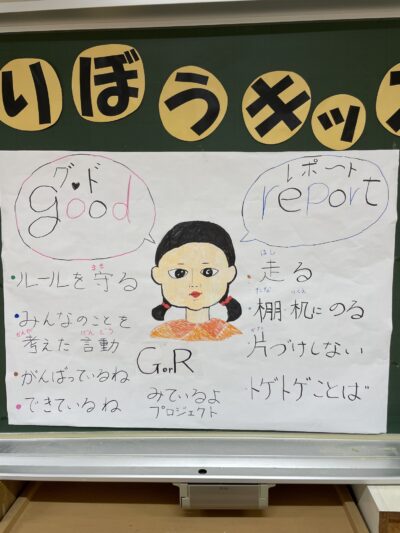 りぼうキッズ
グッド
good
レポート
report
ルールを守る
まも
みんなのことを
考えた言動
かんが
げんどう
がんばっているね
できているね
GorR
みているよ
プロジェクト
走る
はし
棚 机にのる
たな
つくえ
片づけしない
かた
トゲトゲことば